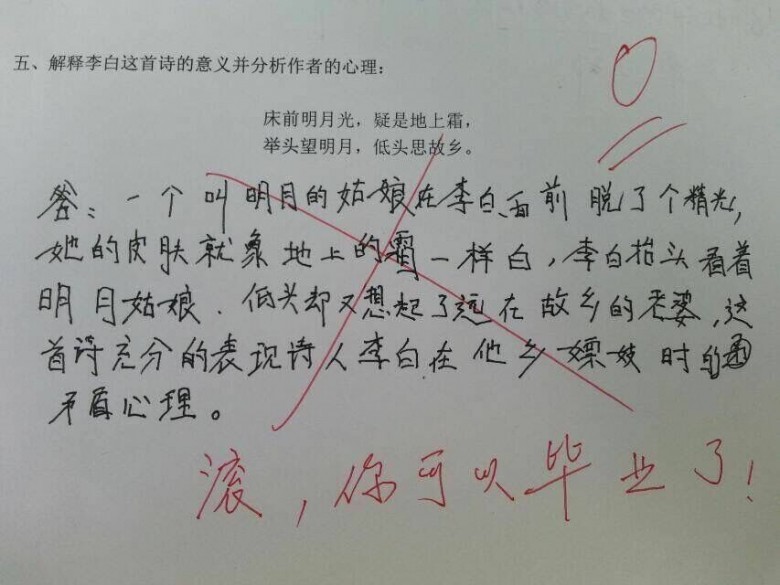 五、解释李白这首诗的意义并分析作者的心理：
床前明月光，疑是地上霜，
举头望明月，低头思故乡。
0
答：一个叫明月的姑娘在李白面前脱了个精光，
她的皮肤就象地上的霜一样白，李白抬头看着
明月姑娘．低头却又想起了远在故乡的老婆，这
首诗充分的表现诗人李白在他乡嫖妓时的
矛盾心理。
滚，你可以毕业了！